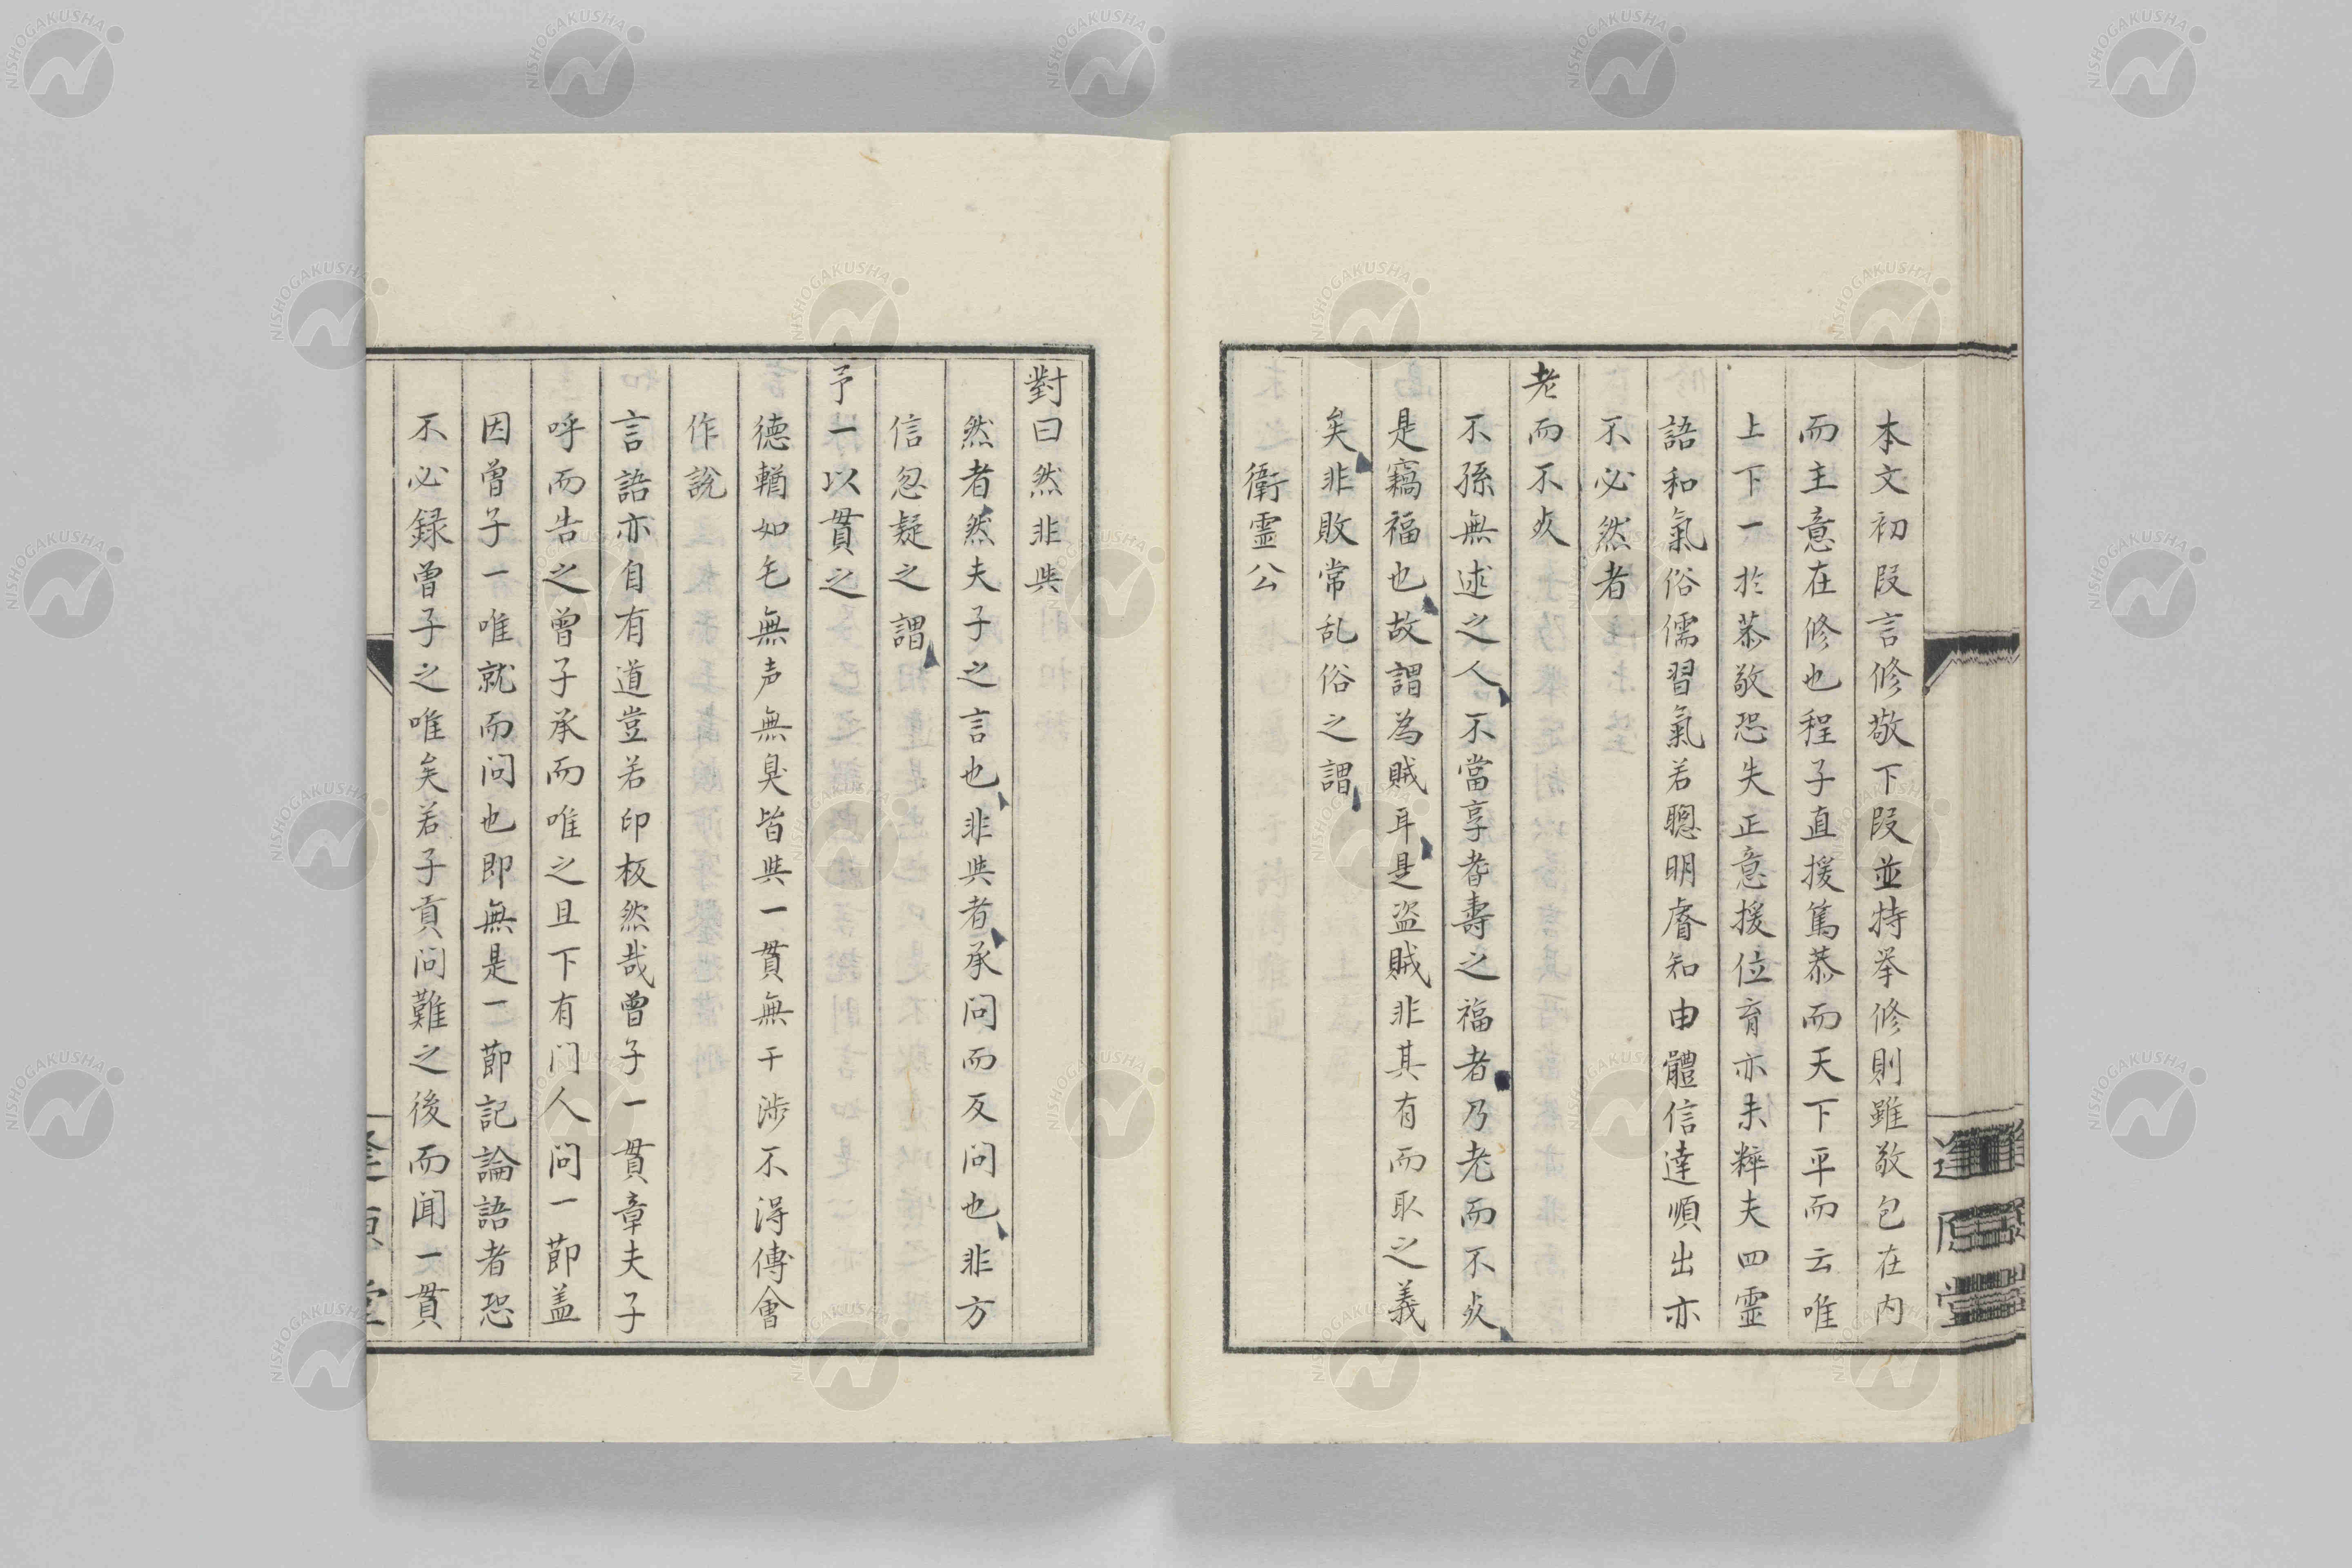 本文初段言修敬下段並持挙修則雖敬包在内
而主意在修也程子直援篤恭而天下平而云唯
上下一於恭敬恐失正意援位育亦未粹夫四霊
語和氣俗儒習氣若聰明睿知由體信達順出亦
不必然者
老而不𣦸
不孫無述之人不當享耆壽之福者乃老而不𣦸
是竊福也故謂為賊耳是盗賊非其有而取之義
矣非敗常乱俗之謂
衛霊公
對曰然非与
然者然夫子之言也非与者承問而反問也非方
信忽疑之謂
予一以貫之
徳輶如毛無声無臭皆与一貫無干渉不得傅會
作説
言語亦自有道豈若印板然哉曾子一貫章夫子
呼而告之曽子承而唯之且下有门人問一莭盖
因曽子一唯就而問也即無是一莭記論語者恐
不必録曽子之唯矣若子貢問難之後而聞一貫
NISHOGAKUSHA